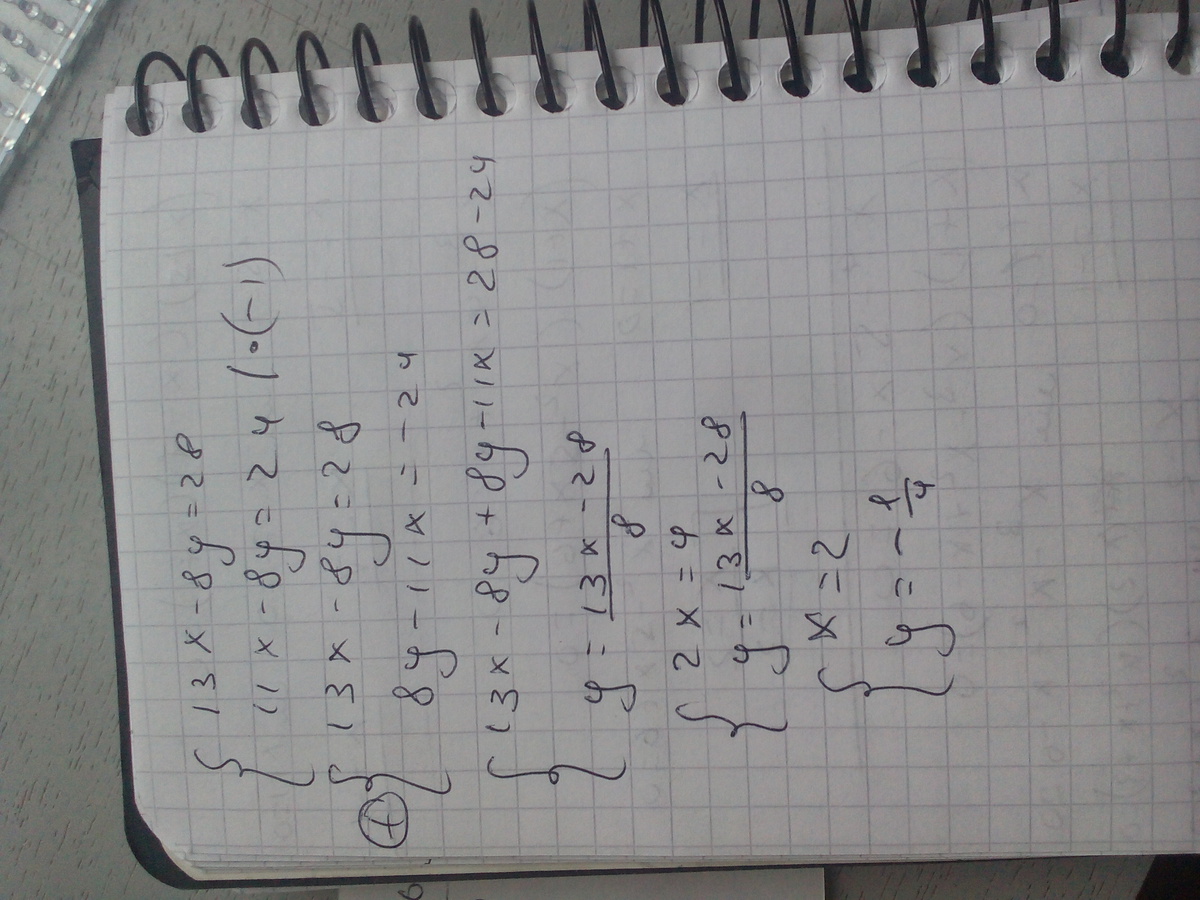 13x - 8y = 28
11x - 8y = 24 | • (-1)
13x - 8y = 28
+
8y - 11x = - 24
13x - 8y + 8y - 11x = 28 - 24
y = 13x - 28
8
2x = 4
y = 13x - 28
8
x = 2
y = - 1/4